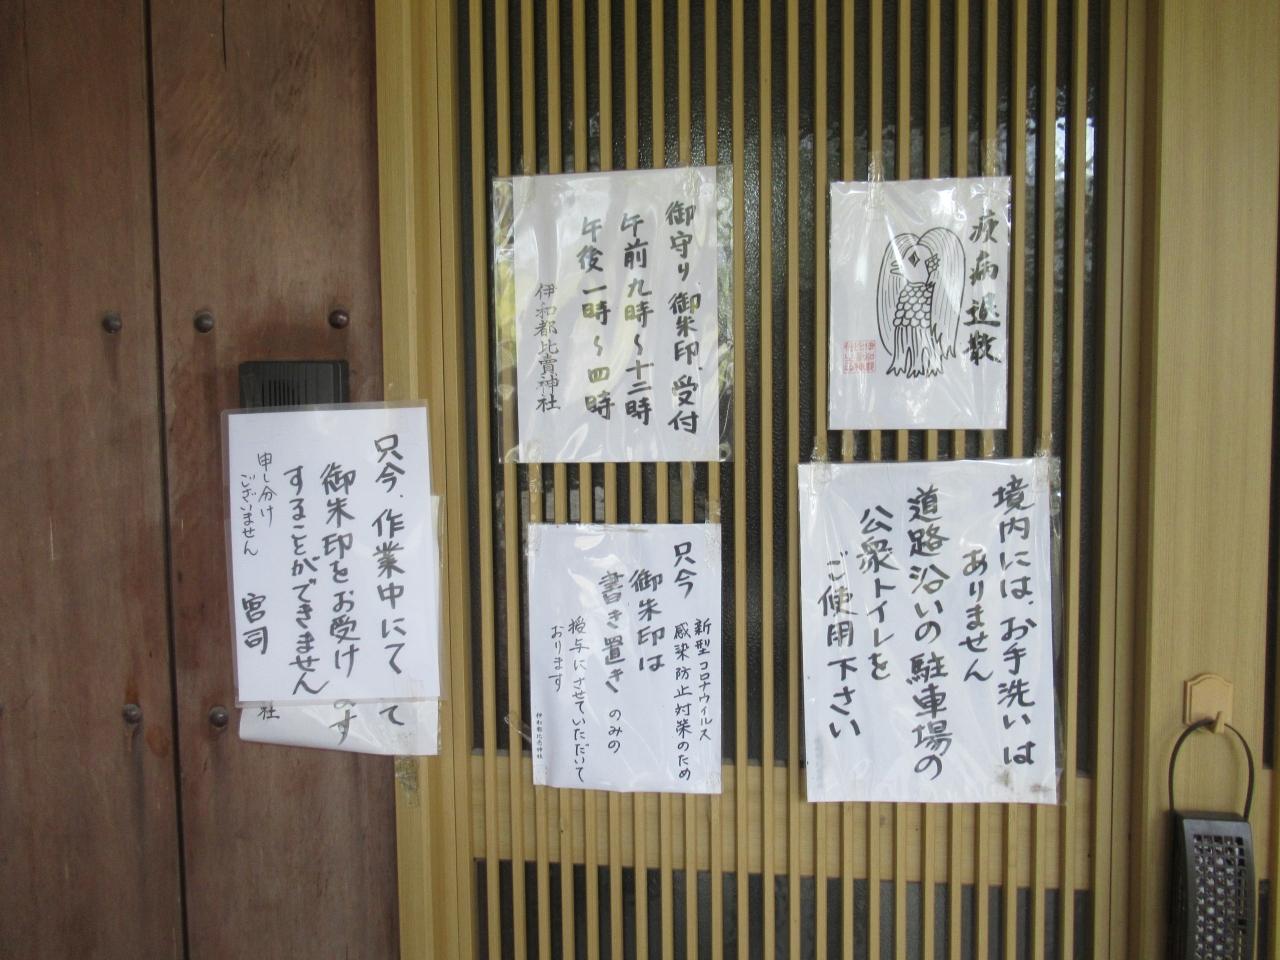 疫病退散
御守り、御朱印、受付
午前九時～十二時
午後一時～四時
伊和都比賣神社
境内には、お手洗いは
ありません
道路沿いの駐車場の
公衆トイレを
ご使用下さい
只今
新型コロナウィルス
感染防止対策のため
御朱印は
書き置きのみの
授与にさせていただいて
おります
伊和都比売神社
只今、作業中にて
御朱印をお受け
することができません
申し分け
ございません
宮司
て
のす
社